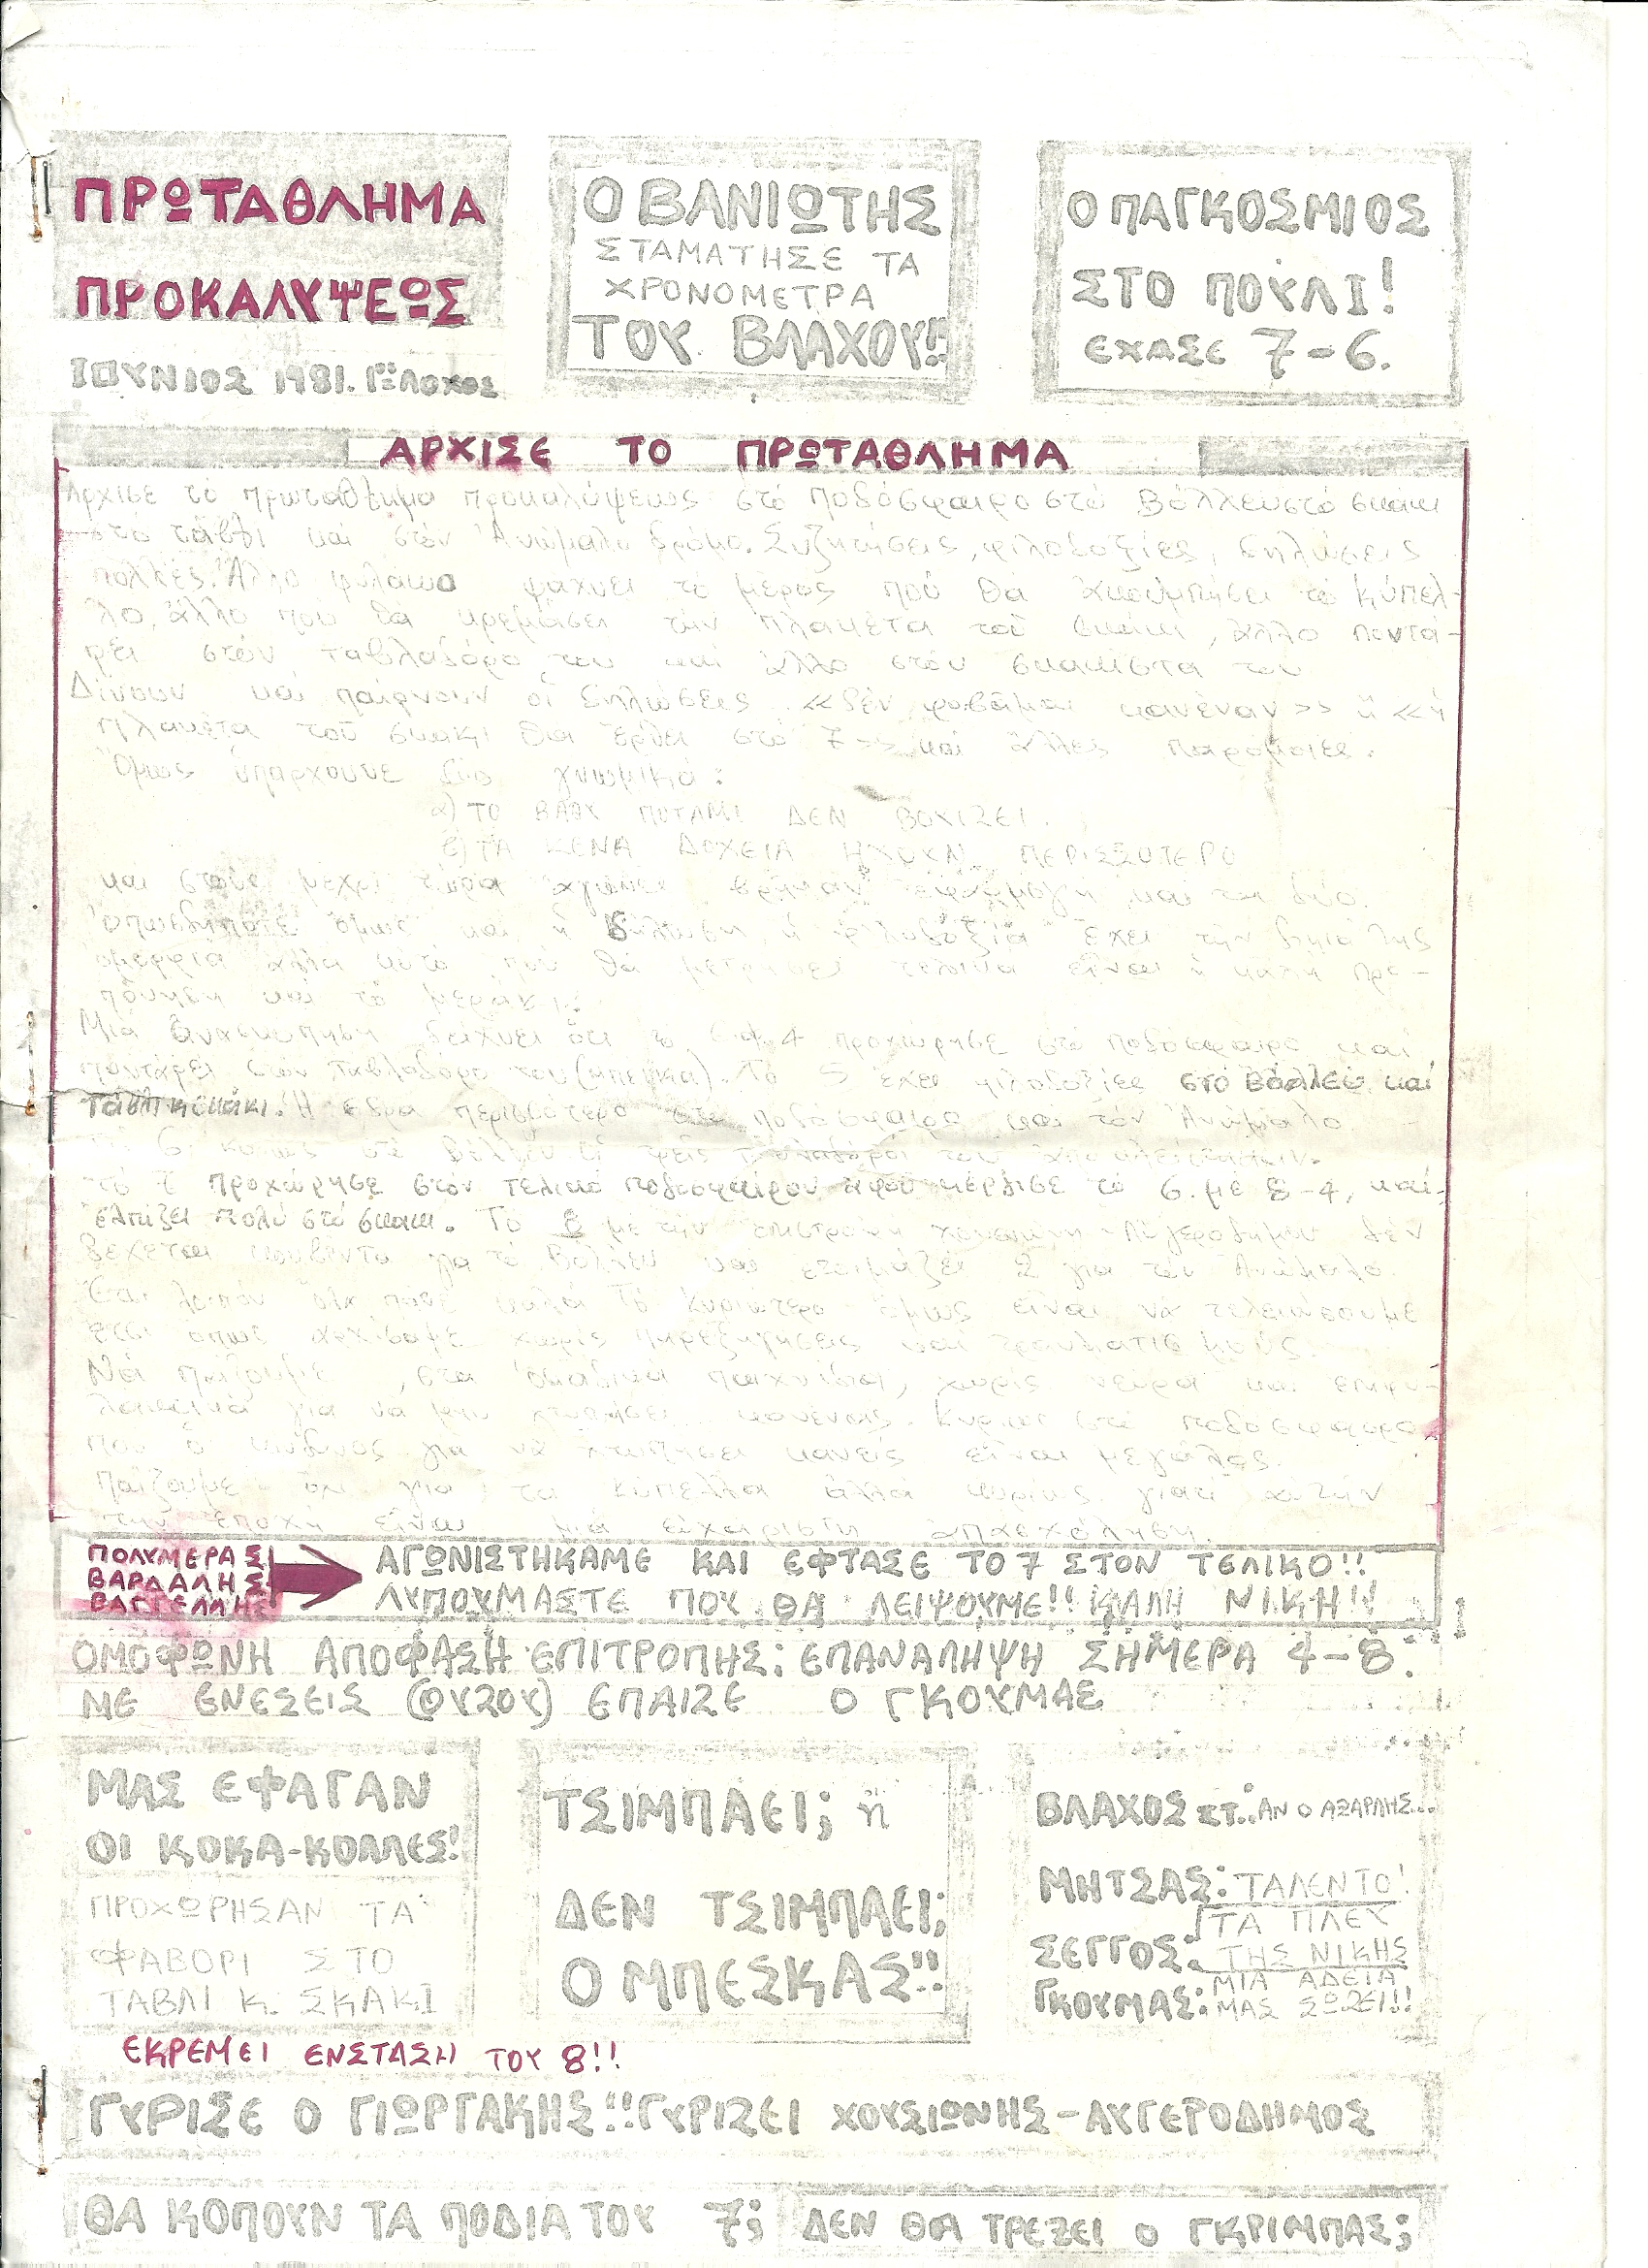 ΠΡΩΤΑΘΛΗΜΑ
ΠΡΟΚΑΛΥΨΕΩΣ
ΙΟΥΝΙΟΣ 1981. ΛΟΧΟΣ
Ο ΒΑΝΙΩΤΗΣ
ΣΤΑΜΑΤΗΣΕ ΤΑ
ΧΡΟΝΟΜΕΤΡΑ
ΤΟΥ ΒΛΑΧΟΥ!!
Ο ΠΑΓΚΟΣΜΙΟΣ
ΣΤΟ ΠΟΥΛΙ!
ΕΧΑΣΕ 7-6.
ΑΡΧΙΣΕ ΤΟ ΠΡΩΤΑΘΛΗΜΑ
Άρχισε τό πρωτάθλημα προκαλύψεως στό ποδόσφαιρο στό Βόλλευ στό σκάκι
στό τάβλι καί στόν Ἀνώμαλο δρόμο. Συζητήσεις, φιλοδοξίες, δηλώσεις
πολλές. Ἄλλο φυλακιο ψάχνει τό μέρος πού θα ἀκουμπήσει τό κύπελ-
λο, ἄλλο που θα κρεμάσει την πλακέτα τοῦ σκακι, ἄλλο ποντά-
ρει στόν ταβλαδόρο του καί ἄλλο στόν σκακίστα του
Δίνουν καί παίρνουν οἱ δηλώσεις «δέν φοβᾶμαι κανέναν» ἤ «ἡ
πλακέτα τοῦ σκακι θα ἔρθει στό 7» καί ἄλλες παρόμοιες.
Ὅμως ὑπάρχουνε δύο γνωμικά:
α) ΤΟ ΒΑΘΥ ΠΟΤΑΜΙ ΔΕΝ ΒΟΥΙΖΕΙ.
β) ΤΑ ΚΕΝΑ ΔΟΧΕΙΑ ΗΧΟΥΝ ΠΕΡΙΣΣΟΤΕΡΟ
και στούς μεχρι τώρα ἀγῶνες βρῆκαν ἐφαρμογη και τα δύο.
Ὁπωσδήποτε ὅμως και ἡ δήλωση, ἡ φιλοδοξία ἔχει τήν δικιά της
ὀμορφιά ἀλλά αὐτό πού θά μετρήσει τελικά εἶναι ἡ καλή προ-
πόνηση καί τό μεράκι.
Μιά ἀνασκόπηση δείχνει ὅτι το 4 προχώρησε στό ποδόσφαιρο και
ποντάρει στόν ταβλαδόρο του (Μπέσκα). Τό 5 ἔχει φιλοδοξίες στό Βόλλευ και
τάβλι κ σκάκι. Ἡ εδρα περισσότερο στο ποδόσφαιρο και τόν Ἀνώμαλο.
τό 7 προχώρησε στον τελικό ποδοσφαίρου ἀφοῦ κέρδισε τό 6 με 8-4, καί
ἐλπίζει πολύ στό σκακι. Τό 8 με τήν ἐπιστροφη Χουσιωνη Αὐγεροδημου δέν
δέχεται κουβέντα για τό Βόλλεϋ και ετοιμάζει 2 για τόν Ἀνώμαλο.
Ἔτσι λοιπόν ὅλα πᾶνε καλά Τό κυριώτερο ὅμως εἶναι νά τελειώσουμε
ἔτσι οπως ἀρχίσαμε χωρίς παρεξηγησεις και τραυματισμούς.
Νά παίζουμε, στα ὁμαδικά παιχνίδια, χωρίς νεύρα και επιφυ-
λακτικά για να μην χτυπήσει κανένας. Κυρίως στό ποδοσφαιρο
που ὁ κίνδυνος για νά χτυπήσει κανείς εἶναι μεγάλος.
Παίζουμε ὄχι για τα κύπελλα ἀλλά κυρίως γιατί αὐτήν
την ἐποχη εἶναι μιά εὐχάριστη απασχόληση.
ΠΟΛΥΜΕΡΑΣ
ΒΑΡΔΑΛΗΣ
ΒΑΓΓΕΛΗΣ
ΑΓΩΝΙΣΤΗΚΑΜΕ ΚΑΙ ΕΦΤΑΣΕ ΤΟ 7 ΣΤΟΝ ΤΕΛΙΚΟ!!
ΛΥΠΟΥΜΑΣΤΕ ΠΟΥ ΘΑ ΛΕΙΨΟΥΜΕ!! ΚΑΛΗ ΝΙΚΗ!!
ΟΜΟΦΩΝΗ ΑΠΟΦΑΣΗ ΕΠΙΤΡΟΠΗΣ: ΕΠΑΝΑΛΗΨΗ ΣΗΜΕΡΑ 4-8.
ΜΕ ΕΝΕΣΕΙΣ (ΟΥΖΟΥ) ΕΠΑΙΖΕ Ο ΓΚΟΥΜΑΣ
ΜΑΣ ΕΦΑΓΑΝ
ΟΙ ΚΟΚΑ-ΚΟΛΛΕΣ!
ΠΡΟΧΩΡΗΣΑΝ ΤΑ
ΦΑΒΟΡΙ ΣΤΟ
ΤΑΒΛΙ Κ. ΣΚΑΚΙ
ΤΣΙΜΠΑΕΙ; ή
ΔΕΝ ΤΣΙΜΠΑΕΙ;
Ο ΜΠΕΣΚΑΣ!!
ΒΛΑΧΟΣ ΑΝ Ο ΑΞΑΡΛΗΣ...
ΜΗΤΣΑΣ: ΤΑΛΕΝΤΟ!
ΣΕΓΓΟΣ: ΤΑ ΠΛΕΥ
ΤΗΣ ΝΙΚΗΣ
ΓΚΟΥΜΑΣ: ΜΙΑ ΑΔΕΙΑ
ΜΑΣ ΣΩΖΕΙ!!
ΕΚΡΕΜΕΙ ΕΝΣΤΑΣΗ ΤΟΥ 8!!
ΓΥΡΙΣΕ Ο ΓΙΩΡΓΑΚΗΣ!! ΓΥΡΙΖΕΙ ΧΟΥΣΙΩΝΗΣ-ΑΥΓΕΡΟΔΗΜΟΣ
ΘΑ ΚΟΠΟΥΝ ΤΑ ΠΟΔΙΑ ΤΟΥ 7; ΔΕΝ ΘΑ ΤΡΕΞΕΙ Ο ΓΚΡΙΜΠΑΣ;